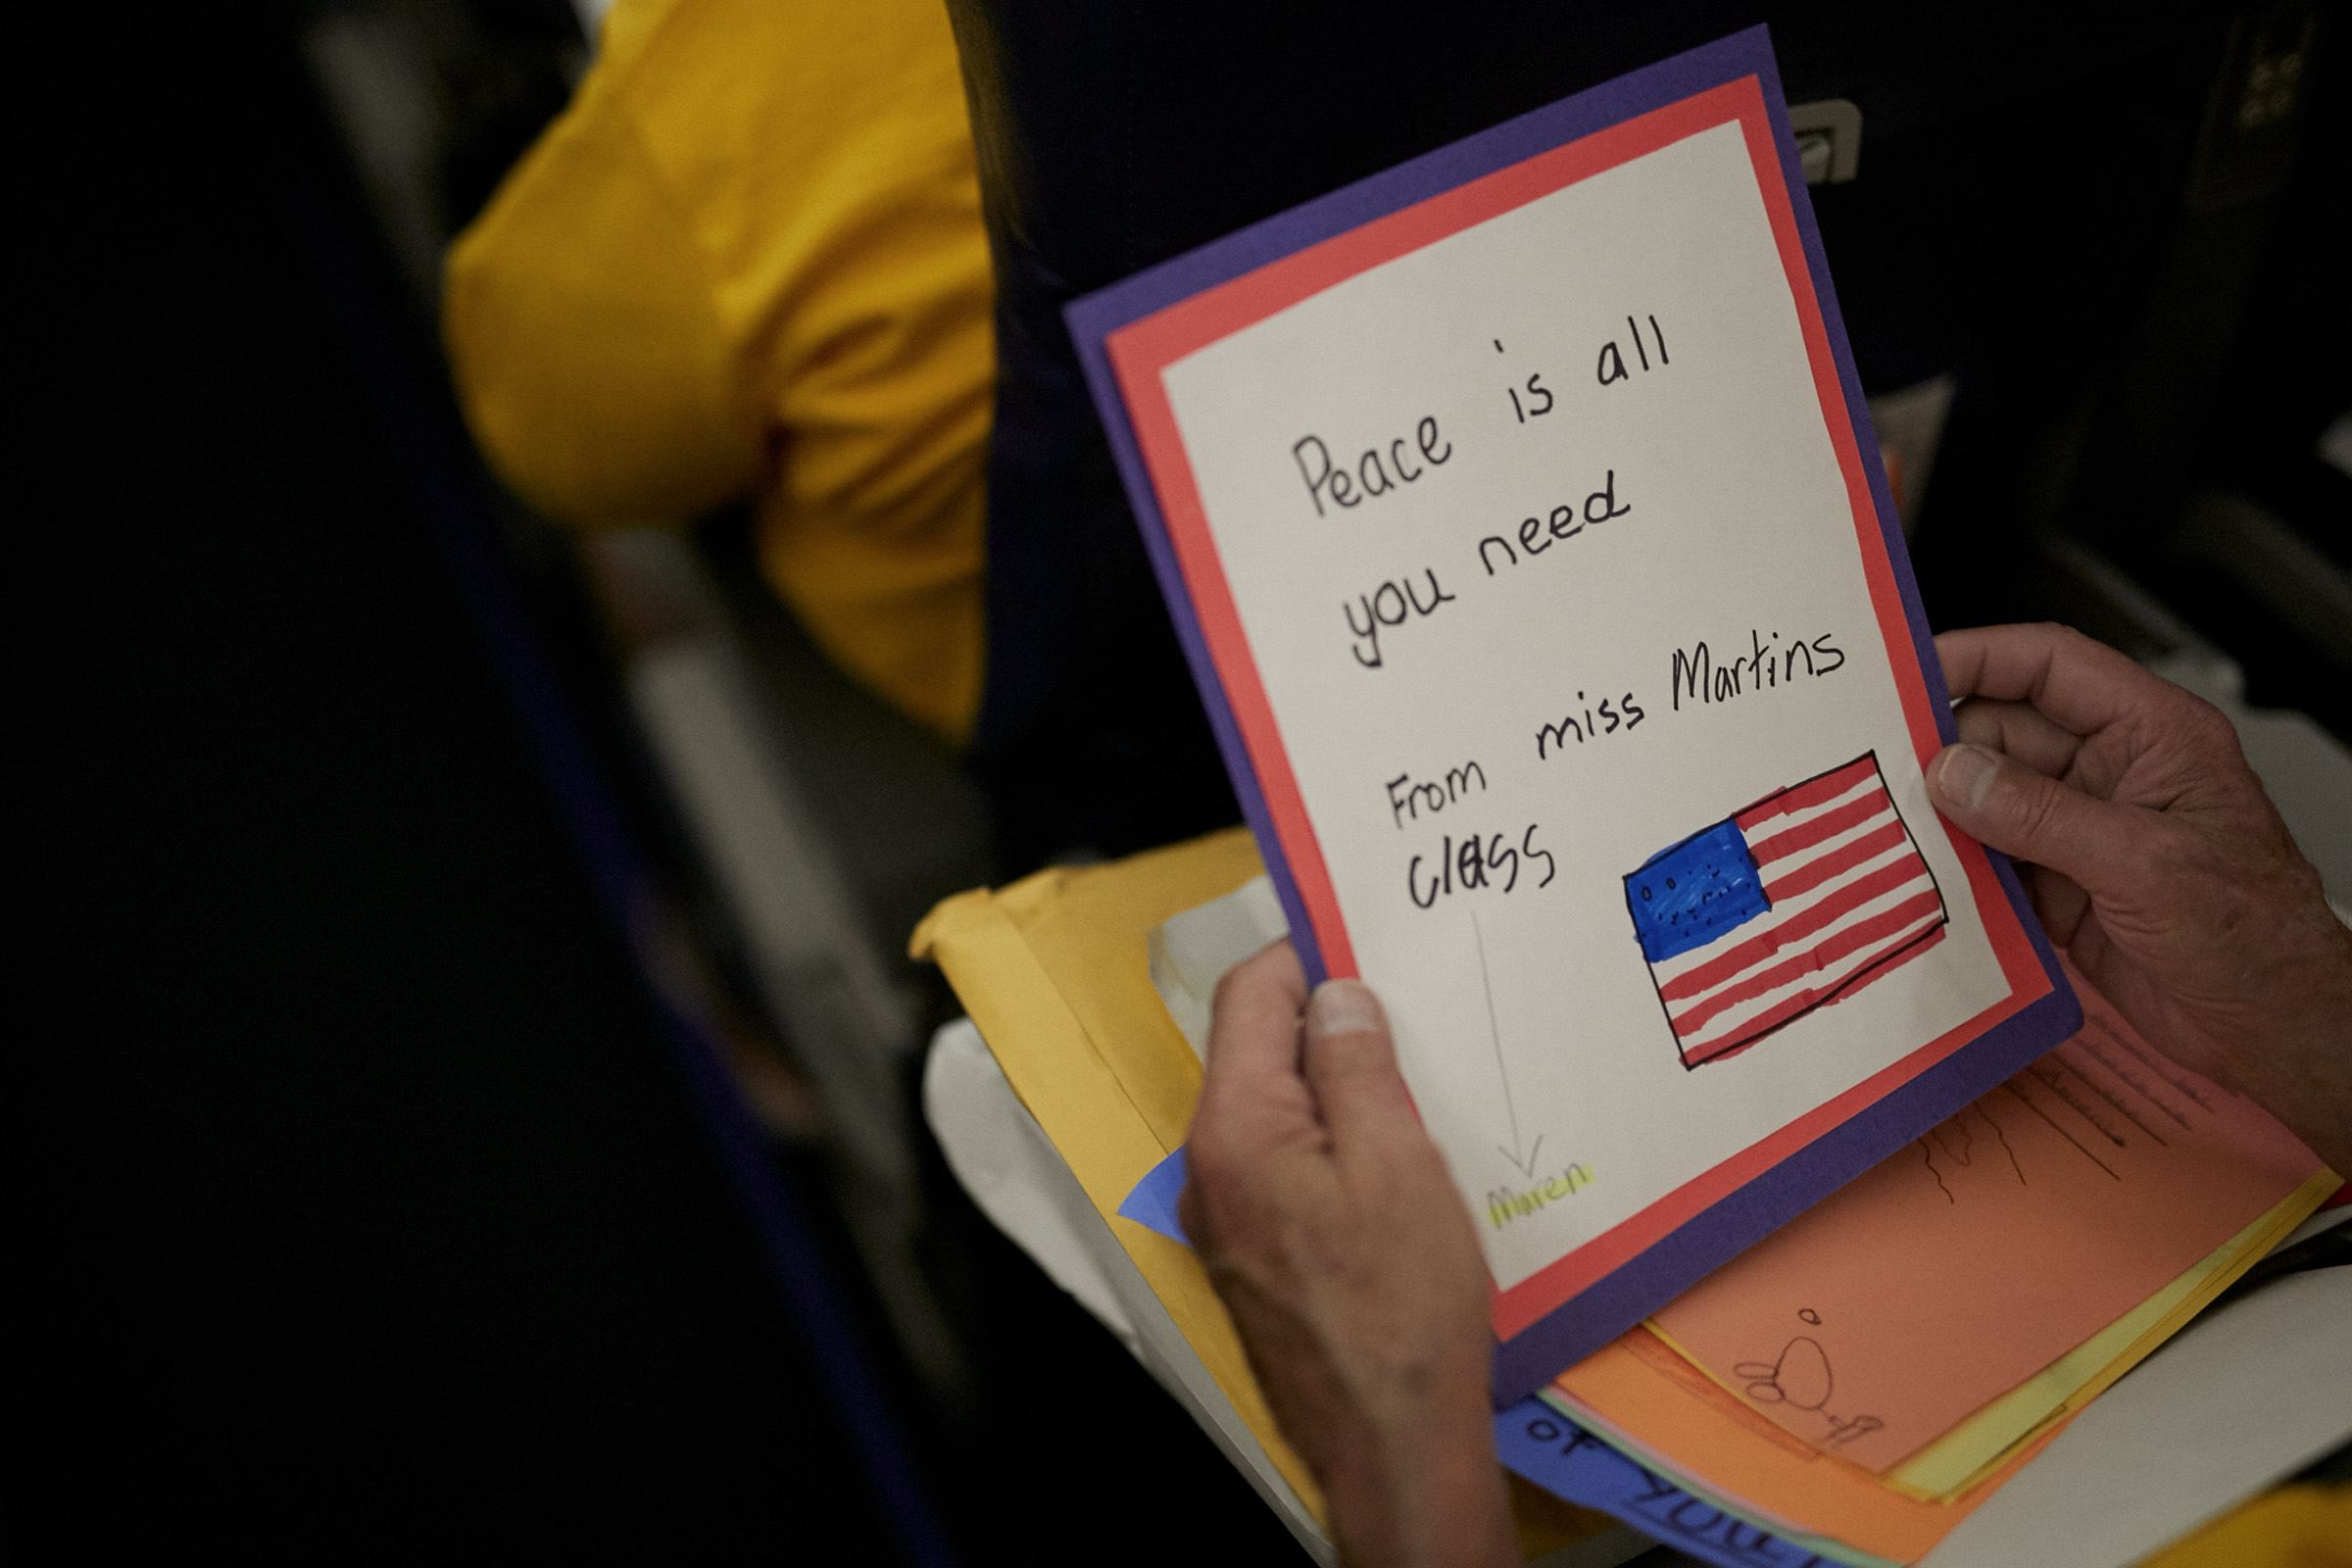 Peace is all
you need
From miss Martins
class
Maren
of your